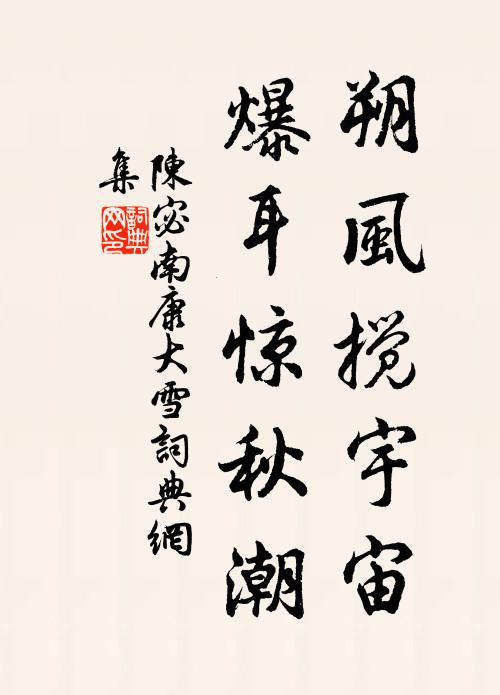 朔風搅宇宙
爆耳惊秋潮
陳宓南康大雪詞典網
集
詞典
网印